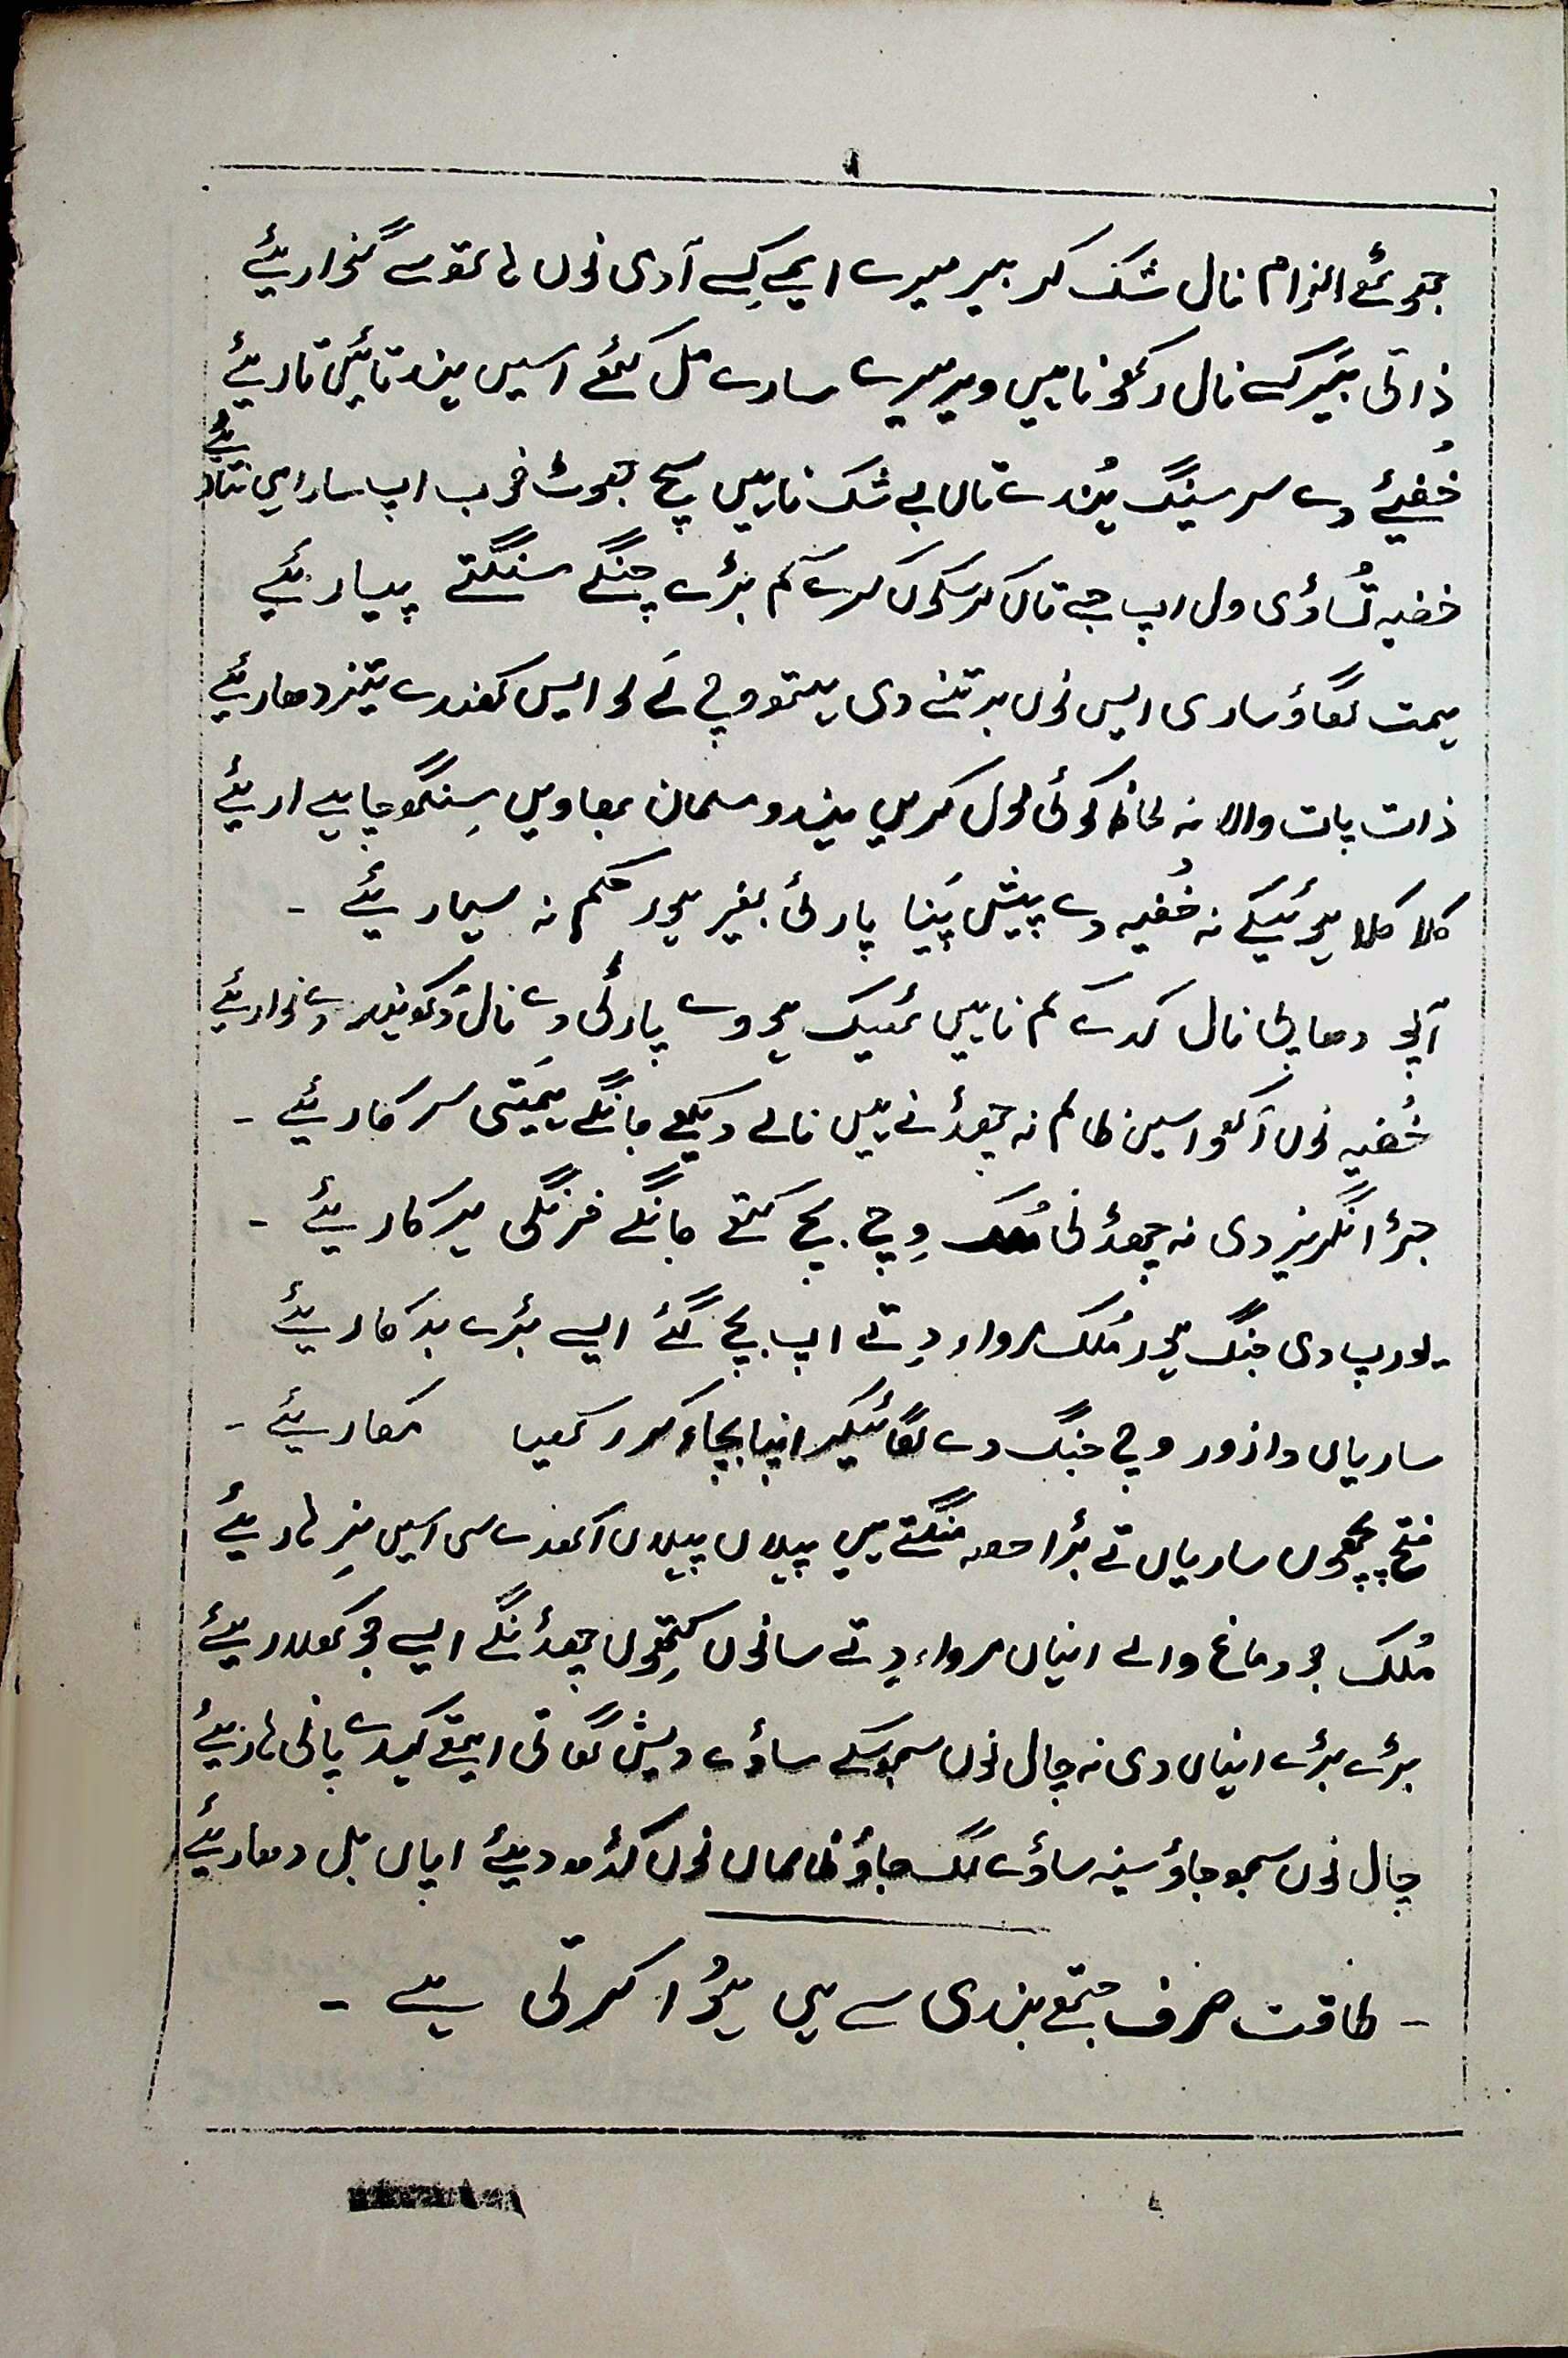 جھوٹھے الزام نال شک کر بیر میرے ایمے کِسے آدمی نوں ہاتھوں سے گنواریئے
ذاتی بَیَر کسے نال رکھو ناہیں ویر میرے سارے مل کٹھے اسیں ہند تائیں تاریئے
خُفیئے دے سر سینگ ہُندے تاں بے شک ناہیں سچ جھوٹ خوب اپ سارا ہی نتاریئے
خفیہ تُساڈی ول اپ جے تاں کر سکوں کرے کم بڑے چنگے سنگتے پیاریئے
ہمت لگاؤ ساری ایس نوں برتنے دی ہتھ وچ لَے لو ایس کھنڈے تیز دھاریئے
ذات پات والا نہ لحاظ کوئی مول کریں ہندو مسلمان بھاویں سِنگھ چاہے اریئے
کلا کلا ہوئیکے نہ خُفیہ دے پیش پَینا پارٹی بغیر ہور حکم نہ سہاریئے
آپو دھاپی نال کدے کم ناہیں ٹھیک ہووے پارٹی دے نال رکھو بند دے نواریئے
خُفیہ نوں آکھو اسیں ظالم نہ چھڈنے ہیں نالے دیکھے جانگے ہمَیتی سرکاریئے ۔
جڑ انگریز دی نہ چھڈنی مُلک وِچ . بچ کتھے جانگے فرنگی ہیر کاریئے ۔
یورپ دی جنگ ہور مُلک مرواء دِتے اپ بچ گئے ایسے بڑے بدکاریئے
ساریاں دا زور وچ جنگ دے لگائیکر اپنا بچاء کر رکھیا مکاریئے ۔
فتح پچھوں ساریاں تے بڑا حصہ منگتے ہیں پہلاں پہلاں آکھدے سی اسیں نِر ہاریئے
مُلک جو دماغ والے انہاں مرواء دِتے سانوں کِتھوں چھڈنگے ایسے جو کھلاریئے
بڑے بڑے انہاں دی نہ چال نوں سمجھ سکے ساڈے دیش گھاتی ایتھے کیہدے پانی ہاریئے
چال نوں سمجھ جاؤ سینہ ساڈے لگ جاؤ ظالماں نوں کڈھ دیئے اپاں بل دھاریئے
۔ طاقت صرف جتھے بندی سے ہی ہُوا کرتی ہے ۔